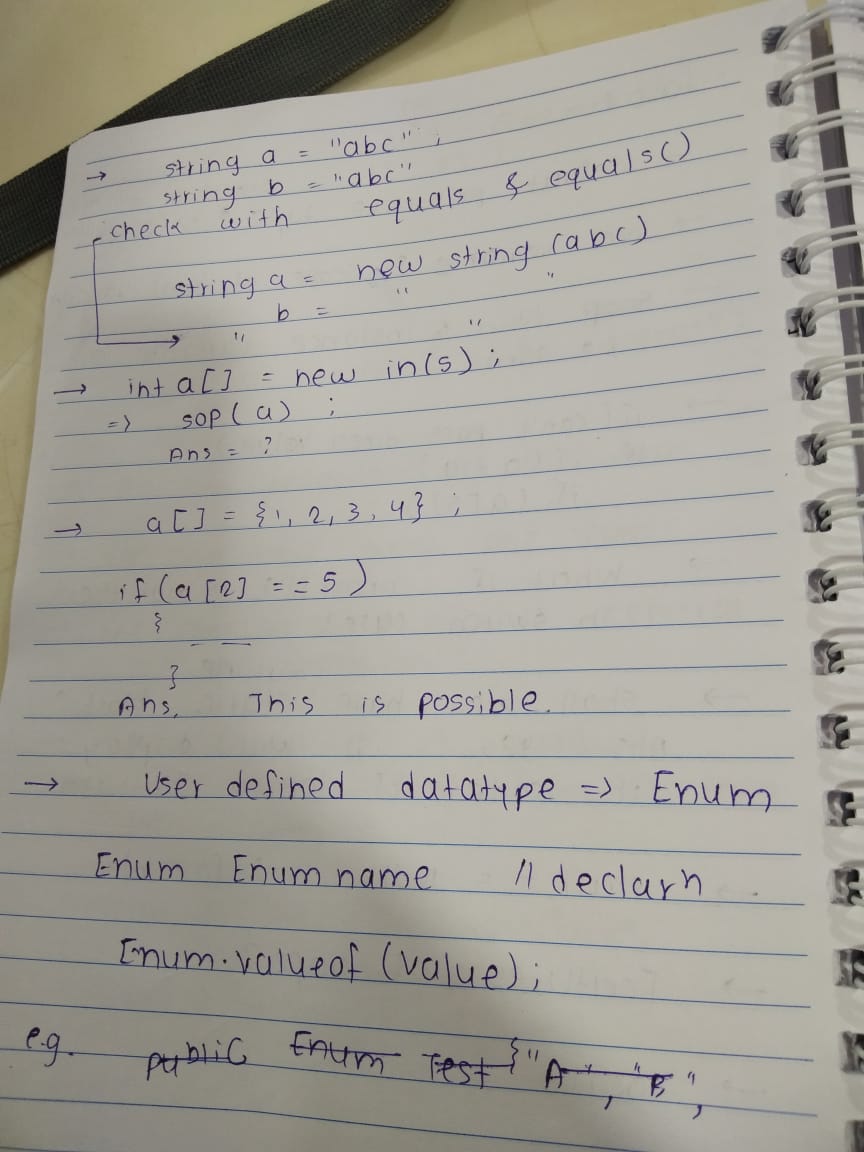 → string a = "abc";
string b = "abc"
check with equals & equals()
string a = new string (abc)
" b = " "
" "
→ int a[] = new in(5);
=> sop(a);
Ans = ?
→ a[] = {1, 2, 3, 4};
if (a[2] == 5)
{
— —
}
Ans. This is possible.
→ User defined datatype => Enum
Enum Enum name // declarn.
Enum.valueof (value);
e.g. public Enum Test {"A", "B",